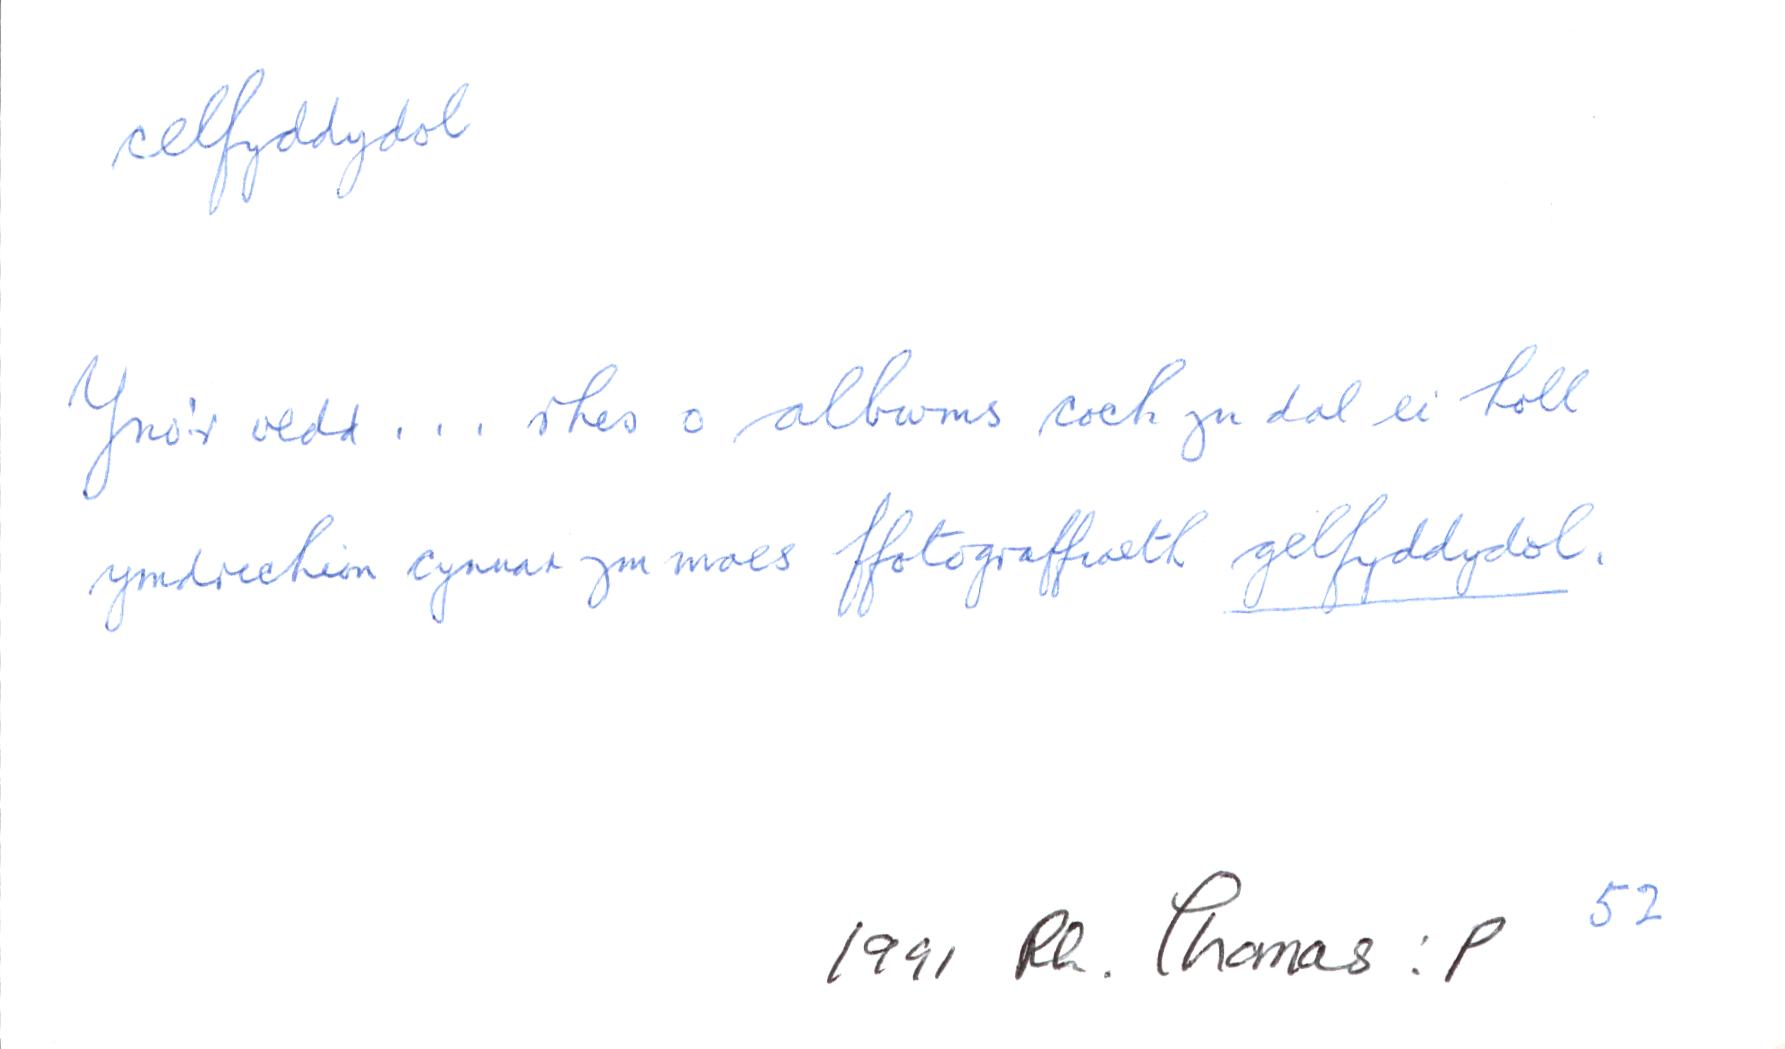 celfyddydol
Yno'r oedd... rhes o albwms coch yn dal ei holl
ymdrechion cynnar ym maes ffotograffiaeth gelfyddydol.
1991 Rh. Thomas : P 52